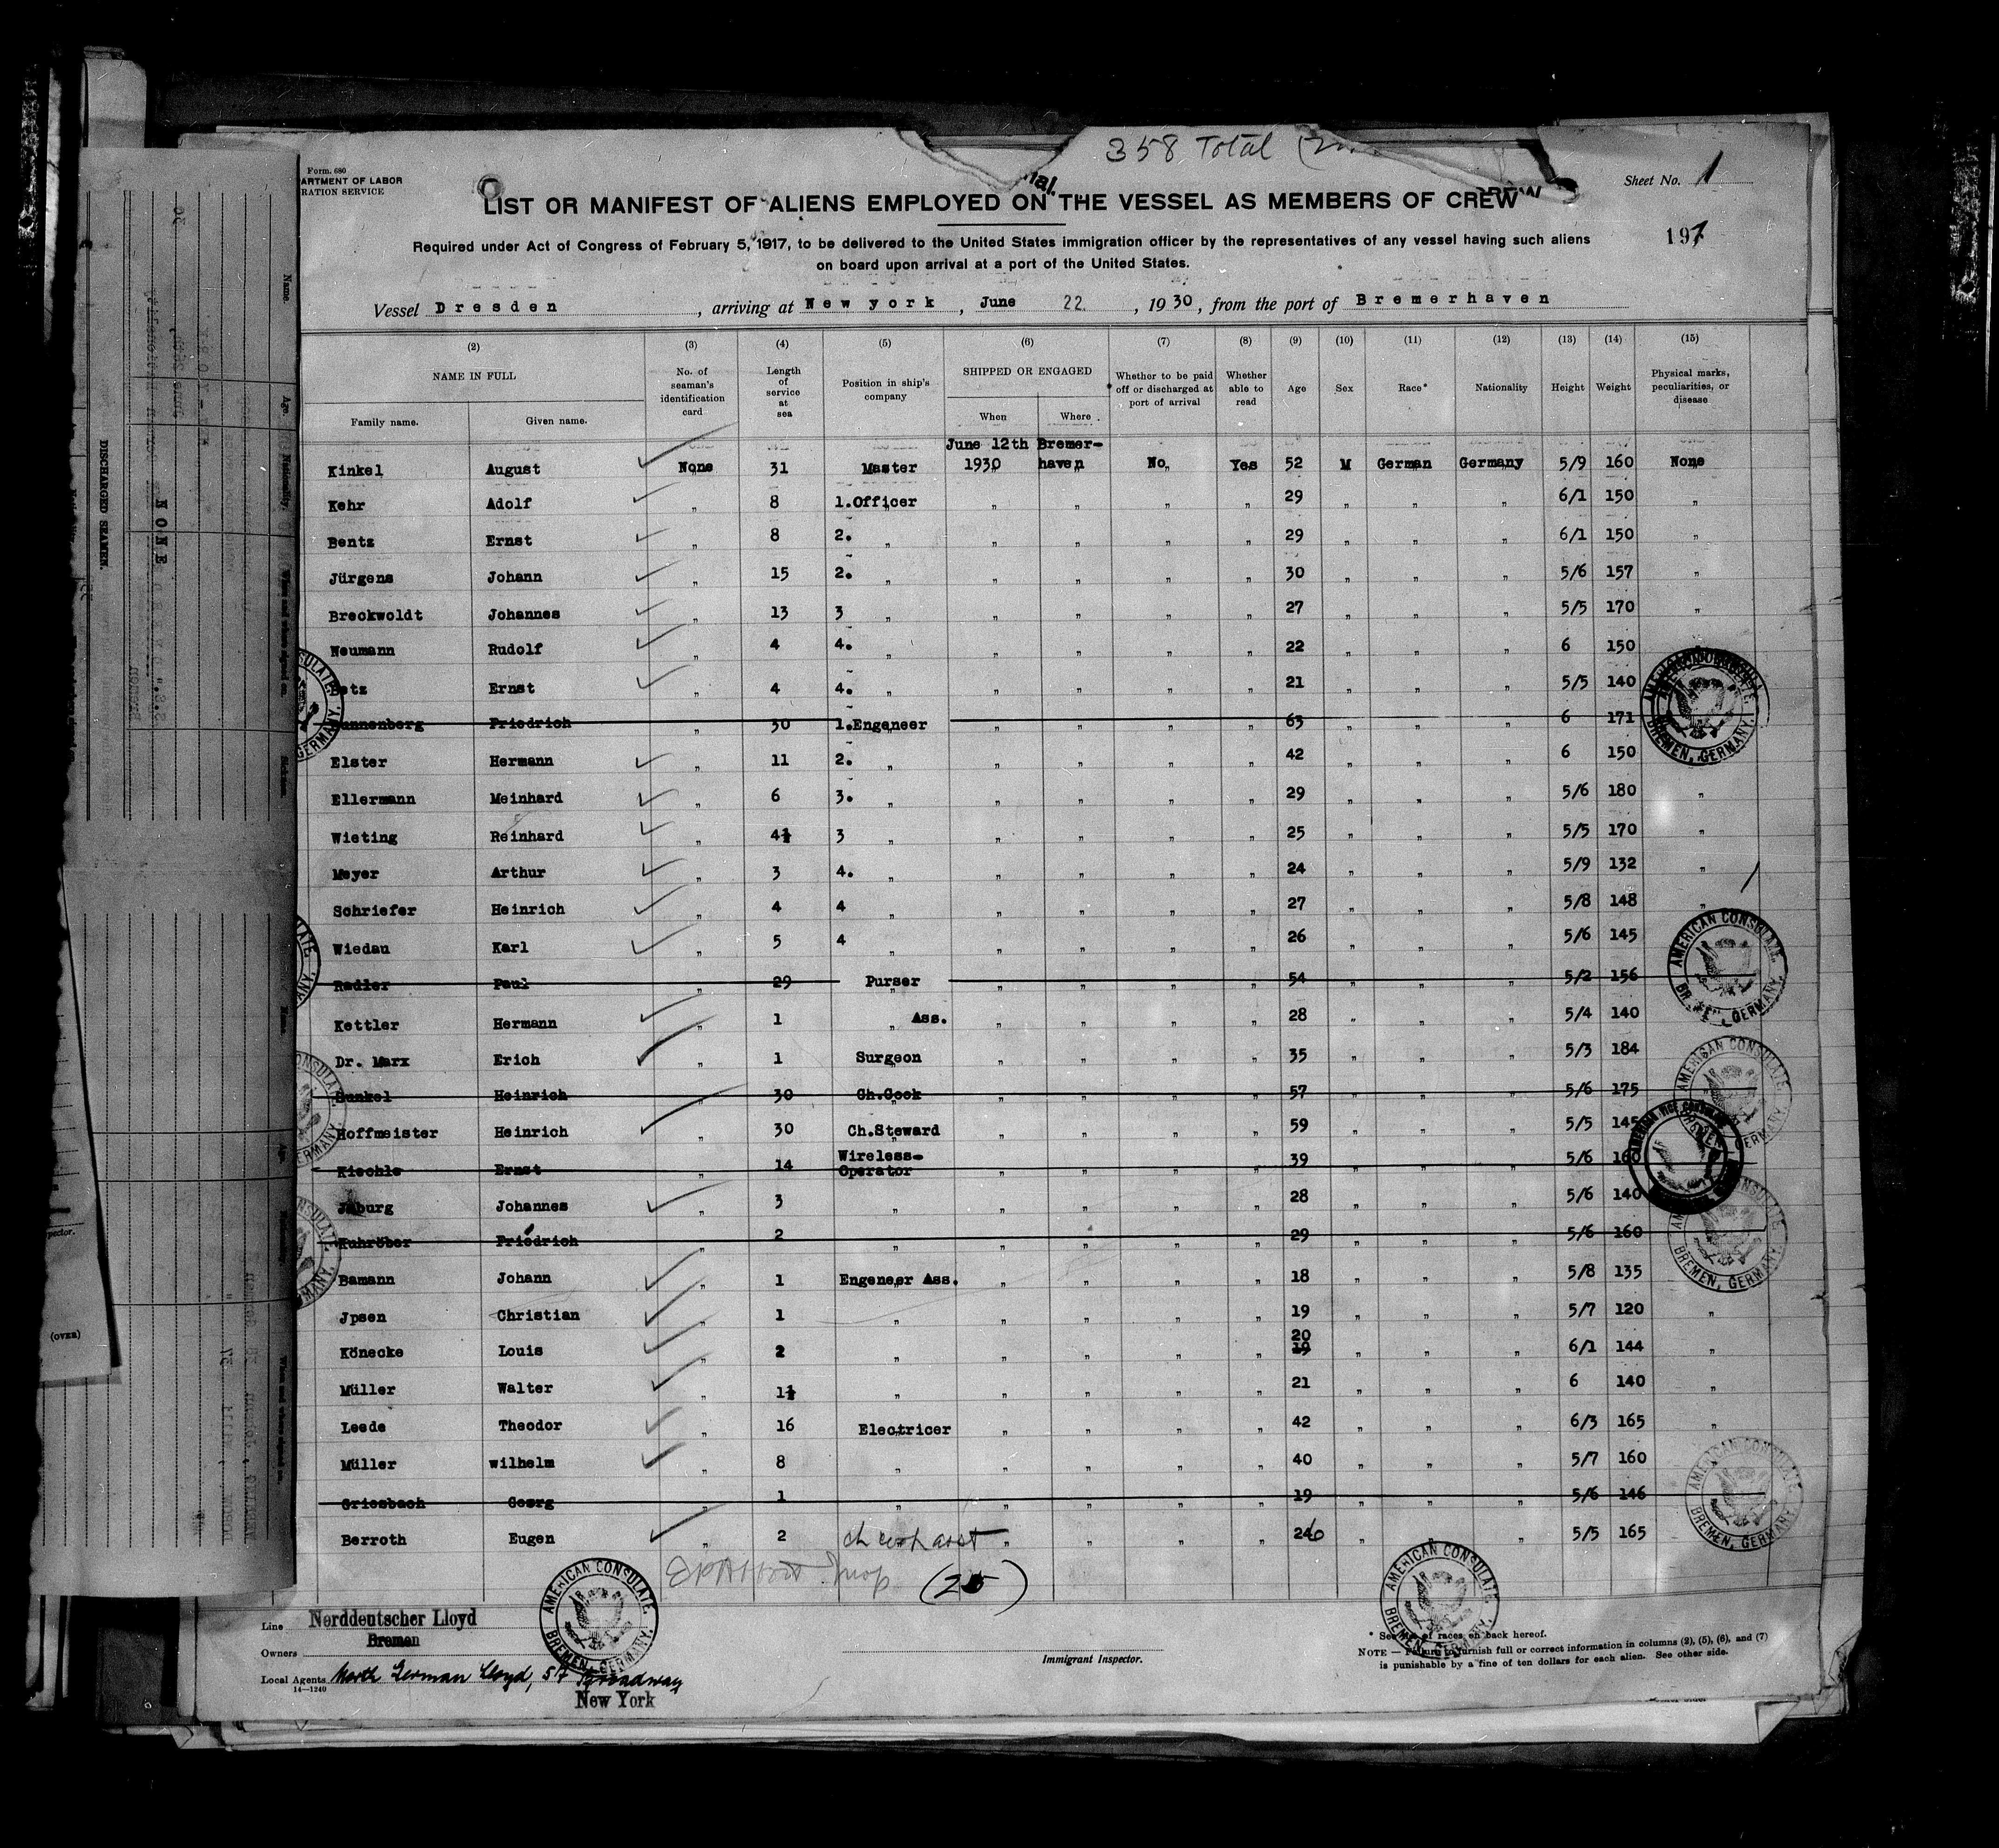 358 Total
Form. 680
ARTMENT OF LABOR
RATION SERVICE
Sheet No. 1
LIST OR MANIFEST OF ALIENS EMPLOYED ON THE VESSEL AS MEMBERS OF CREW
197
Required under Act of Congress of February 5, 1917, to be delivered to the United States immigration officer by the representatives of any vessel having such aliens
on board upon arrival at a port of the United States.
Vessel Dresden, arriving at New york, June 22., 1930, from the port of Bremerhaven
(2) (3) (4) (5) (6) (7) (8) (9) (10) (11) (12) (13) (14) (15)
NAME IN FULL No. of seaman's identification card Length of service at sea Position in ship's company SHIPPED OR ENGAGED Whether to be paid off or discharged at port of arrival Whether able to read Age Sex Race* Nationality Height Weight Physical marks, peculiarities, or disease
Family name. Given name. When Where
June 12th Bremer-
Kinkel August None 31 Master 1930 haven No Yes 52 M German Germany 5/9 160 None
Kehr Adolf " 8 1.Officer " " " " 29 " " " 6/1 150 "
Bentz Ernst " 8 2. " " " " " 29 " " " 6/1 150 "
Jürgens Johann " 15 2. " " " " " 30 " " " 5/6 157 "
Breckwoldt Johannes " 13 3 " " " " " 27 " " " 5/5 170 "
Neumann Rudolf " 4 4. " " " " " 22 " " " 6 150
Ernst " 4 4. " " " " " 21 " " " 5/5 140
Friedrich " 30 1.Engeneer " " " " 63 " " " 6 171
Elster Hermann " 11 2. " " " " " 42 " " " 6 150
Ellermann Meinhard " 6 3. " " " " " 29 " " " 5/6 180 "
Wieting Reinhard " 4½ 3 " " " " " 25 " " " 5/5 170 "
Meyer Arthur " 3 4. " " " " " 24 " " " 5/9 132 "
Schriefer Heinrich " 4 4 " " " " " 27 " " " 5/8 148 "
Wiedau Karl " 5 4 " " " " " 26 " " " 5/6 145
Radler Paul " 29 Purser " " " " 54 " " " 5/2 156
Kettler Hermann " 1 " Ass. " " " " 28 " " " 5/4 140
Dr. Marx Erich " 1 Surgeon " " " " 35 " " " 5/3 184
Sunkel Heinrich " 30 Ch.Cook " " " " 57 " " " 5/6 175
Hoffmeister Heinrich " 30 Ch.Steward " " " " 59 " " " 5/5 145
Wireless-
Kiechle Ernst " 14 Operator " " " " 39 " " " 5/6 160
Johannes " 3 " " " " " 28 " " " 5/6 140
Friedrich " 2 " " " " " 29 " " " 5/6 160
Bamann Johann " 1 Engeneer Ass. " " " " 18 " " " 5/8 135
Jpsen Christian " 1 " " " " " 19 " " " 5/7 120 "
20
Könecke Louis " 2 " " " " " 19 " " " 6/1 144 "
Müller Walter " 1½ " " " " " 21 " " " 6 140 "
Leede Theodor " 16 Electricer " " " " 42 " " " 6/3 165 "
Müller wilhelm " 8 " " " " " 40 " " " 5/7 160
Griesbach Georg " 1 " " " " " 19 " " " 5/6 146
Berroth Eugen " 2 " " " " 26 " " 5/5 165
(25)
Line Norddeutscher Lloyd
Bremen
Owners
Local Agents North German Lloyd, 57 Broadway
14—1240
New York
Immigrant Inspector.
* See list of races on back hereof.
NOTE — Failure to furnish full or correct information in columns (2), (5), (6), and (7)
is punishable by a fine of ten dollars for each alien. See other side.
AMERICAN CONSULATE.
BREMEN, GERMANY.
AMERICAN CONSULATE.
BREMEN, GERMANY.
AMERICAN CONSULATE.
BREMEN, GERMANY.
DISCHARGED SEAMEN.
NONE
(OVER)